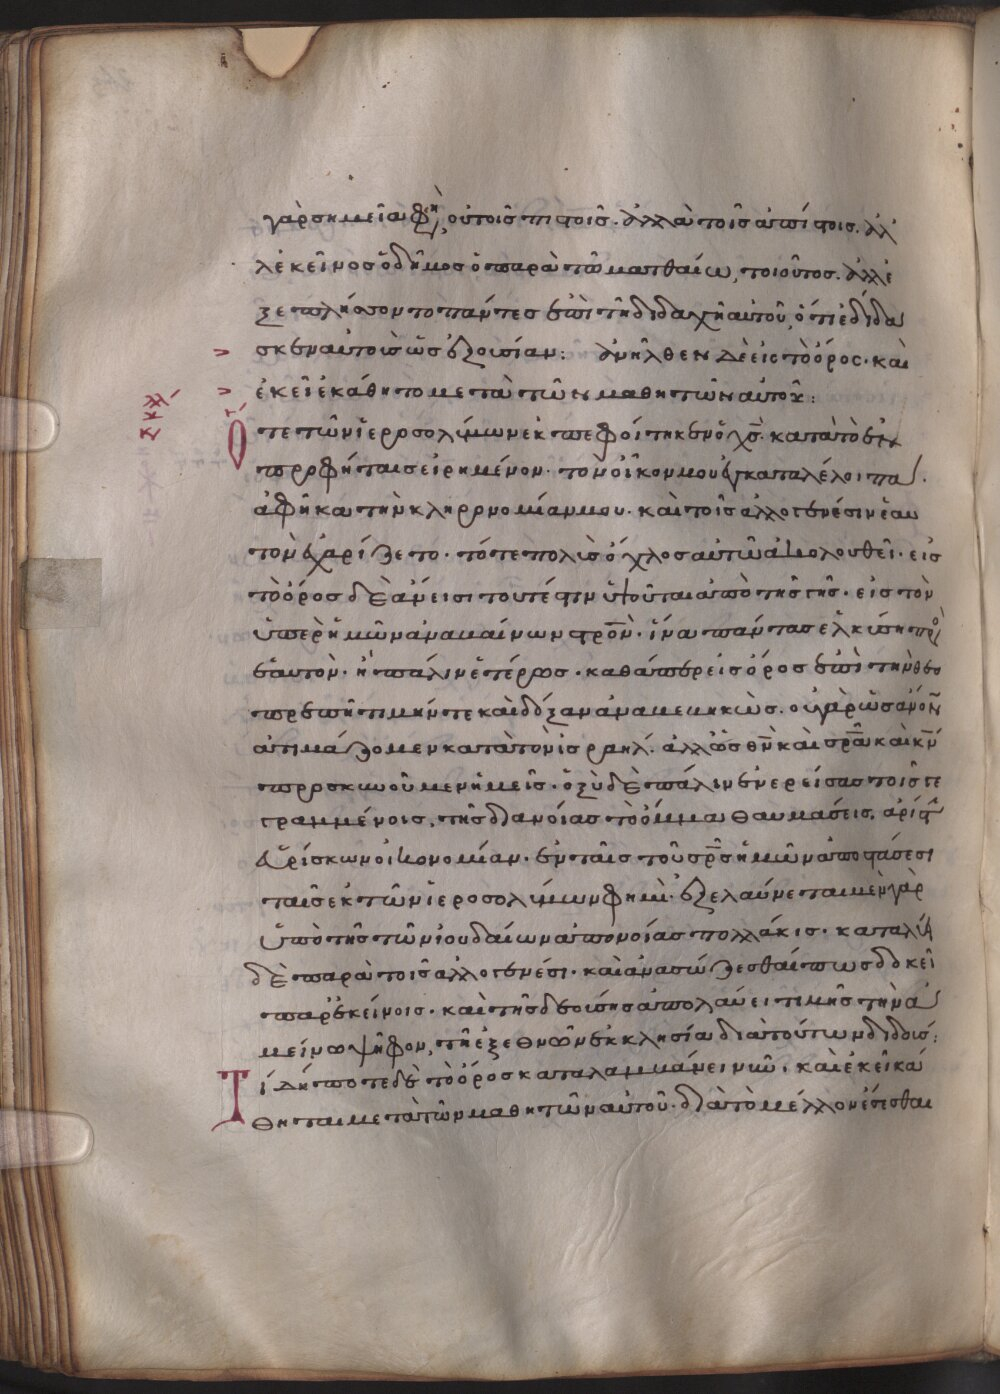 γὰρ σημεῖα φη, οὐ τοῖς πιστοῖς. ἀλλὰ τοῖς ἀπίστοις. ἀλ
λ' ἐκεῖνος ὁ δῆμος ὁ παρὰ τῶ ματθαίω, τοιοῦτος. ἀλλ' ἐ
ξεπλήσσοντο πάντες ἐπὶ τῆ διδαχῆ αὐτοῦ, ὅτι ἐδίδα
σκεν αὐτοὺς ὡς ἐξουσίαν: ἀνῆλθεν δὲ εἰς τὸ ὄρος· καὶ
ἐκεῖ ἐκάθητο μετὰ τῶν μαθητῶν αὐτοῦ:
Ὅτε τῶν ἱεροσολύμων ἐκπεφοίτηκεν ὁ χς. κατὰ τὸ ἐν
προφήταις εἰρημένον· τὸν οἶκόν μου ἐγκαταλέλοιπα.
ἀφῆκα τὴν κληρονομίαν μου· καὶ τοῖς ἀλλογενέσιν ἑαυ
τὸν ἐχαρίζετο· τότε πολὺς ὄχλος αὐτῶ ἀκολουθεῖ· εἰς
τὸ ὄρος δὲ ἄνεισι τουτέστιν ὑψοῦται ἀπὸ τῆς γῆς· εἰς τὸν
ὑπὲρ ἡμῶν ἀναβαίνων στρον· ἵνα πάντας ἑλκύση πρὸ
ἑαυτόν· ἢ πάλιν ἑτέρως· καθάπερ εἰς ὄρος ἐπὶ τὴν θεο
πρεπῆ τιμήν τε καὶ δόξαν ἀναβεβηκώς. οὐ γὰρ ὡς ανον
ἀτιμάζομεν κατὰ τὸν ἰσραηλ. ἀλλ' ὡς θν καὶ σρα καὶ κν
προσκυνοῦμεν ἡμεῖς· ὀξὺ δὲ πάλιν ἐνερείσας τοῖς γε
γραμμένοις, τῆς διανοίας τὸ ὄμμα θαυμάσεις. ἀρίστ
εὑρίσκων οἰκονομίαν· ἐν ταῖς τοῦ σρς ἡμῶν ἀποστάσεσι
ταῖς ἐκ τῶν ἱεροσολύμων φημι· ἐξελαύνεται μὲν γὰρ
ὑπὸ τῆς τῶν ἰουδαίων ἀπονοίας πολλάκις· καταλύει
δὲ παρὰ τοῖς ἀλλογενέσι· καὶ ἀνασώζεσθαί πως δοκεῖ
παρ' ἐκείνοις· καὶ τῆς δεούσης ἀπολαύει τιμῆς τὴν ἀ
μείνω ψῆφον, τῆ ἐξ ἐθνῶν ἐκκλησία διὰ τούτων διδούς:
Τί δήποτε δὲ τὸ ὄρος καταλαμβάνει νῦν, καὶ ἐκεῖ κά
θηται μετὰ τῶν μαθητῶν αὐτοῦ· διὰ τὸ μέλλον ἔσεσθαι